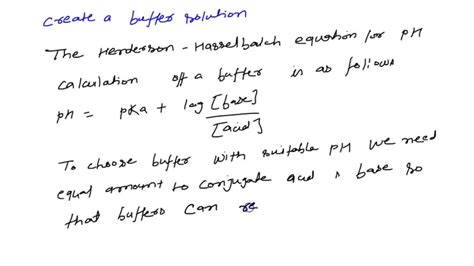 create a buffer solution
The Henderson - Hasselbalch equation for pH
calculation off a buffer is as follows
pH = pKa + log [base]
[acid]
To choose buffer with suitable pH we need
equal amount to conjugate acid & base so
that buffers can re